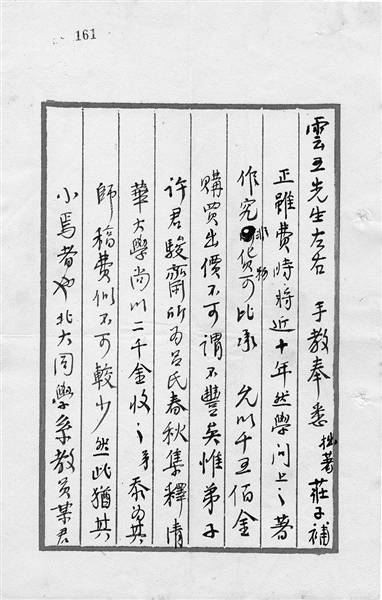 161
雲五先生左右 手教奉悉 拙著莊子補
正雖費時將近十年然學問上之著
作究非貨物可比承 允以千五佰金
購買出價不可謂不豐矣惟弟子
許君駿齋所為呂氏春秋集釋清
華大學尚以二千金收之弟忝為其
師稿費似不可較少然此猶其
小焉者也北大同學系教員某君